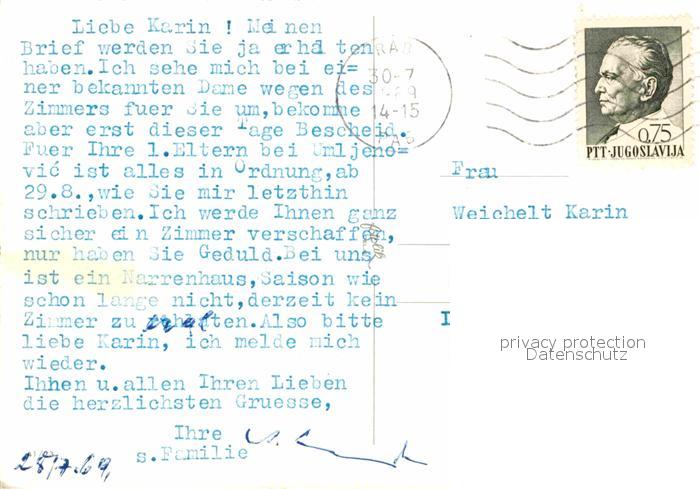 Liebe Karin ! Meinen
Brief werden Sie ja erhalten
haben.Ich sehe mich bei ei=
ner bekannten Dame wegen des
Zimmers fuer Sie um,bekomme
aber erst dieser Tage Bescheid.
Fuer Ihre l.Eltern bei Umljeno=
vić ist alles in Ordnung,ab
29.8.,wie Sie mir letzthin
schrieben.Ich werde Ihnen ganz
sicher ein Zimmer verschaffen,
nur haben Sie Geduld.Bei uns
ist ein Narrenhaus,Saison wie
schon lange nicht,derzeit kein
Zimmer zu
Also bitte
liebe Karin, ich melde mich
wieder.
Ihnen u.allen Ihren Lieben
die herzlichsten Gruesse,
Ihre
s.Familie
28/7.69,
RAB
30-7
14-15
RAB
0.75
PTT-JUGOSLAVIJA
Frau
Weichelt Karin
privacy protection
Datenschutz